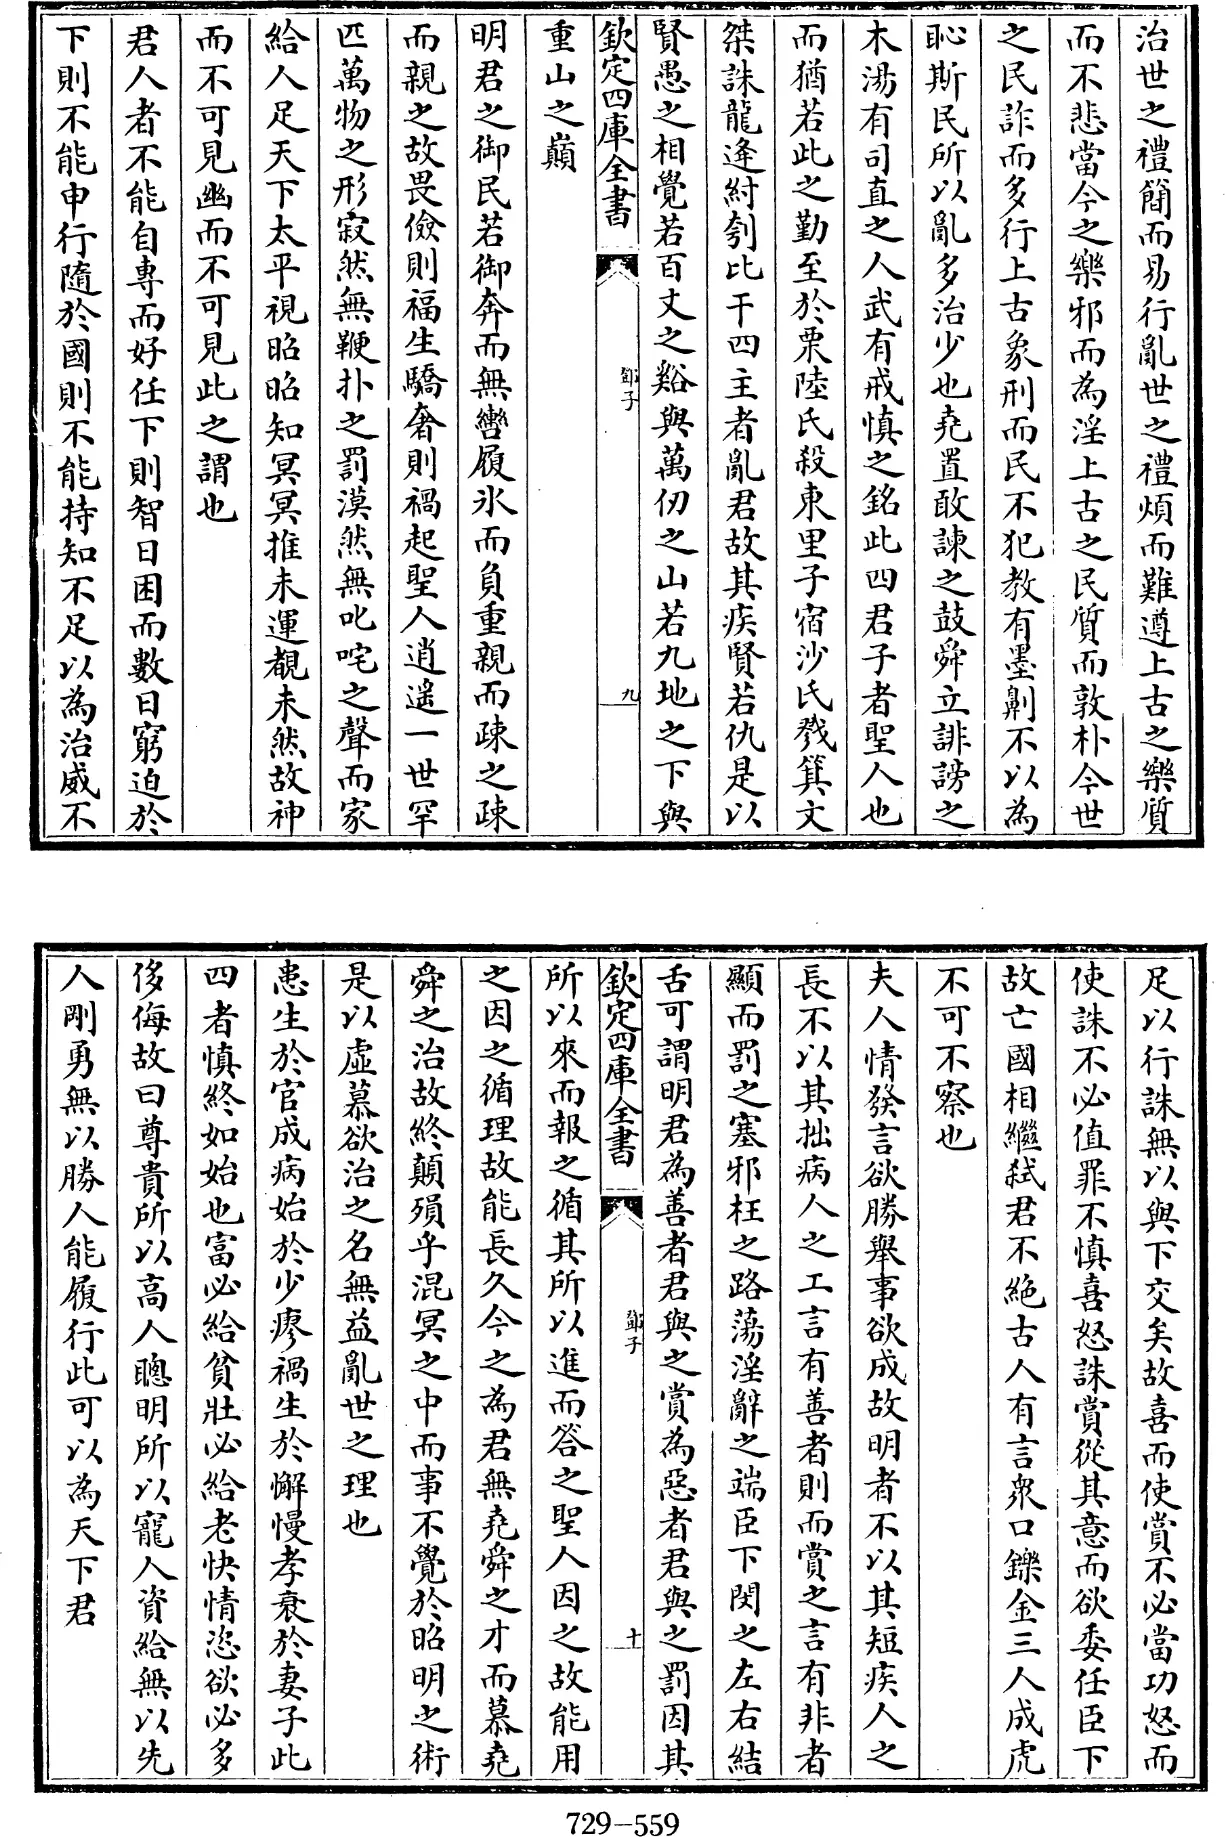 治世之禮簡而易行亂世之禮煩而難遵上古之樂質
而不悲當今之樂邪而為淫上古之民質而敦朴今世
之民詐而多行上古象刑而民不犯教有墨劓不以為
恥斯民所以亂多治少也堯置敢諫之鼓舜立誹謗之
木湯有司直之人武有戒慎之銘此四君子者聖人也
而猶若此之勤至於栗陸氏殺東里子宿沙氏戮箕文
桀誅龍逄紂刳比干四主者亂君故其疾賢若仇是以
賢愚之相覺若百丈之谿與萬仞之山若九地之下與
欽定四庫全書
鄧子
九
重山之巔
明君之御民若御奔而無轡履氷而負重親而疎之疎
而親之故畏儉則福生驕奢則禍起聖人逍遥一世罕
匹萬物之形寂然無鞭扑之罰漠然無叱咤之聲而家
給人足天下太平視昭昭知冥冥推未運覩未然故神
而不可見幽而不可見此之謂也
君人者不能自專而好任下則智日困而數日窮迫於
下則不能申行隨於國則不能持知不足以為治威不
足以行誅無以與下交矣故喜而使賞不必當功怒而
使誅不必值罪不慎喜怒誅賞從其意而欲委任臣下
故亡國相繼弑君不絶古人有言衆口鑠金三人成虎
不可不察也
夫人情發言欲勝舉事欲成故明者不以其短疾人之
長不以其拙病人之工言有善者則而賞之言有非者
顯而罰之塞邪枉之路蕩淫辭之端臣下閔之左右結
舌可謂明君為善者君與之賞為惡者君與之罰因其
欽定四庫全書
鄧子
十
所以來而報之循其所以進而答之聖人因之故能用
之因之循理故能長久今之為君無堯舜之才而慕堯
舜之治故終顛殞乎混冥之中而事不覺於昭明之術
是以虛慕欲治之名無益亂世之理也
患生於官成病始於少瘳禍生於懈慢孝衰於妻子此
四者慎終如始也富必給貧壯必給老快情恣欲必多
侈侮故曰尊貴所以高人聰明所以寵人資給無以先
人剛勇無以勝人能履行此可以為天下君
729-559